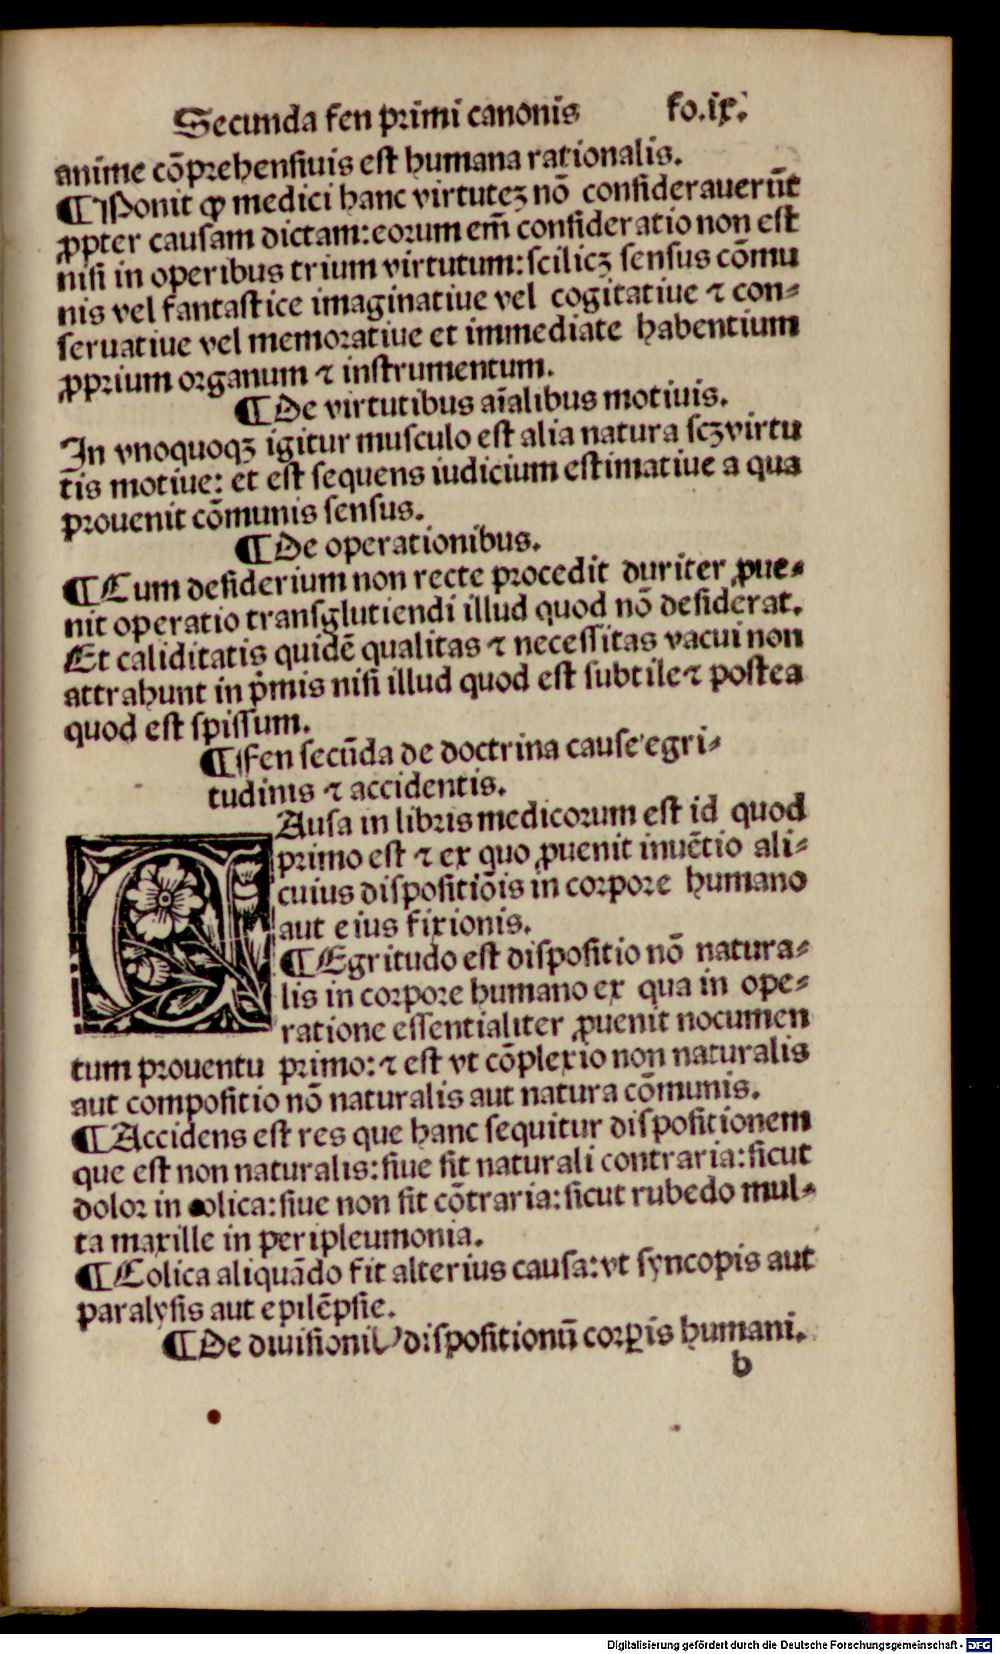 Secunda fen primi canonis fo.ix.
anime cõprehensiuis est humana rationalis.
¶Ponit ꝙ medici hanc virtuteꝫ nõ considerauerũt
ꝓpter causam dictam:eorum em̃ consideratio non est
nisi in operibus trium virtutum:scilicꝫ sensus cõmu
nis vel fantastice imaginatiue vel cogitatiue ⁊ con⸗
seruatiue vel memoratiue et immediate habentium
ꝓprium organum ⁊ instrumentum.
¶De virtutibus aĩalibus motiuis.
In vnoquoqꝫ igitur musculo est alia natura scꝫ virtu
tis motiue: et est sequens iudicium estimatiue a qua
prouenit cõmunis sensus.
¶De operationibus.
¶Cum desiderium non recte procedit duriter ꝓue⸗
nit operatio transglutiendi illud quod nõ desiderat.
Et caliditatis quidẽ qualitas ⁊ necessitas vacui non
attrahunt in p̃mis nisi illud quod est subtile ⁊ postea
quod est spissum.
¶Fen secũda de doctrina cause egri⸗
tudinis ⁊ accidentis.
CAusa in libris medicorum est id quod
primo est ⁊ ex quo ꝓuenit inuẽtio ali⸗
cuius dispositiõis in corpore humano
aut eius fixionis.
¶Egritudo est dispositio nõ natura⸗
lis in corpore humano ex qua in ope⸗
ratione essentialiter ꝓuenit nocumen
tum prouentu primo: ⁊ est vt cõplexio non naturalis
aut compositio nõ naturalis aut natura cõmunis.
¶Accidens est res que hanc sequitur dispositionem
que est non naturalis:siue sit naturali contraria:sicut
dolor in colica:siue non sit cõtraria:sicut rubedo mul⸗
ta maxille in peripleumonia.
¶Colica aliquãdo fit alterius causa:vt syncopis aut
paralysis aut epilẽpsie.
¶De diuisionibꝰ dispositionũ corꝑis humani.
b
Digitalisierung gefördert durch die Deutsche Forschungsgemeinschaft - DFG